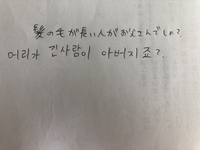 髪の毛が長い人がお父さんでしょ?
머리가 긴사람이 아버지 죠?